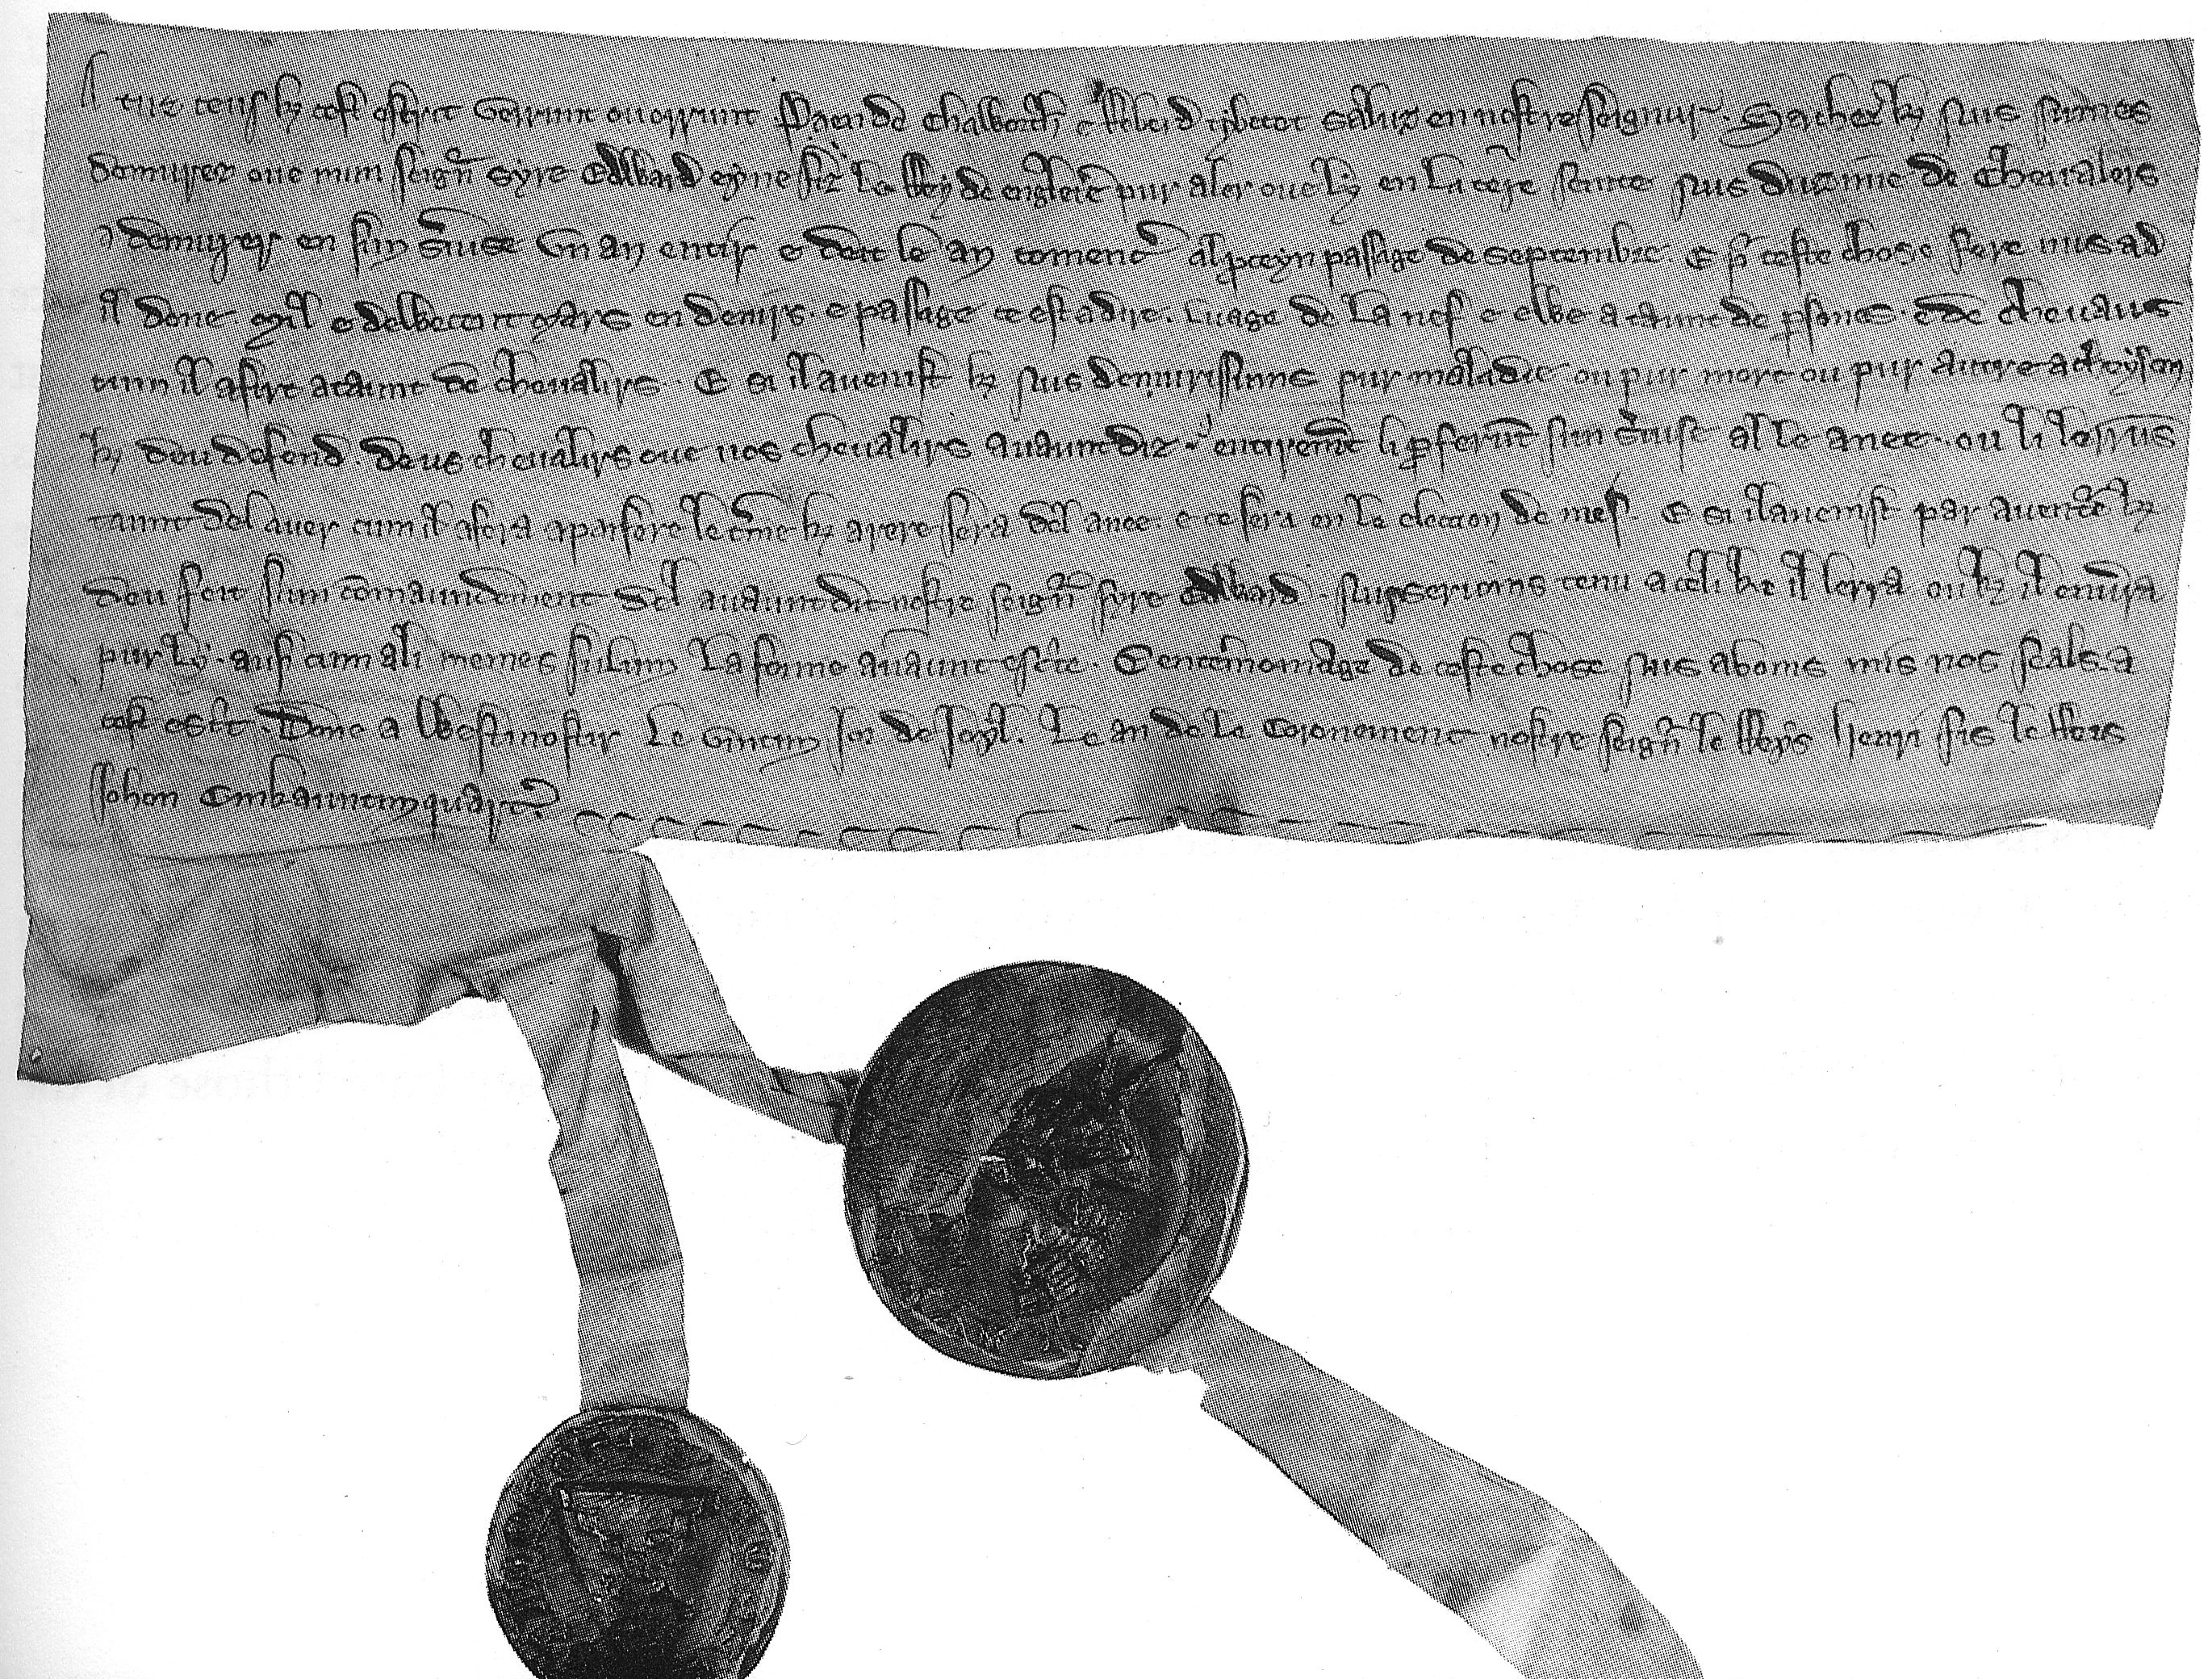 A tuz ceus ky cest escrit verrunt ou orrunt Paen de Chaworth e Roberd Tybetot saluz en nostre seignur. Sachez ky nus sumes
demurez oue mun seignr Syre Edward eyne fiz le Rey de engletere pur aler oue ly en la tere seinte nus duzime de chevalers
e demurer en sun seruise un an entir e deit le an comencer al procheyn passage de septembre. E pur ceste chose fere nus ad
il done mil e deus cent mars en deners. e passage ce est a dire. luage de la nef e ewe a taunt de persones. e de chevaus
cum il afert a taunt de chevalirs. E si il auenist ky nus demurissuns pur maladie ou pur mort ou pur autre acheyson
ky deu defend. deus chevalirs oue nos chevalirs auauntdiz entirement li parferunt sun seruise al le anee. ou li lerrus
taunt del auer cum il afera a parfere le terme ky arere sera del anee. e ce sera en le eleccion de mes. E si il auenist par auenture ky
deu feit sun comaundement del auauntdit nostre seignr syre Edward. nus serioms tenu a celi ke il lerra ou ky il enuerra
pur ly. ausi cum a li memes sulum la forme auaunt escrite. E en temoniage de ceste chose nus avoms mis nos seals a
cest escrit. Done a Westmoster le vintim jor de Joyl. Le an de le coronement nostre seignr le Reys Henri fis le Reis
Johon Cinkauntimquart